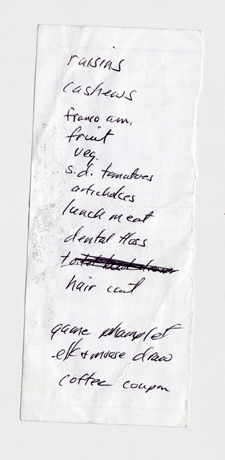 raisins
cashews
franco am.
fruit
veg.
s.d. tomatoes
artichokes
lunch meat
dental floss
hair cut
game phamplet
elk & moose draw
coffee coupon